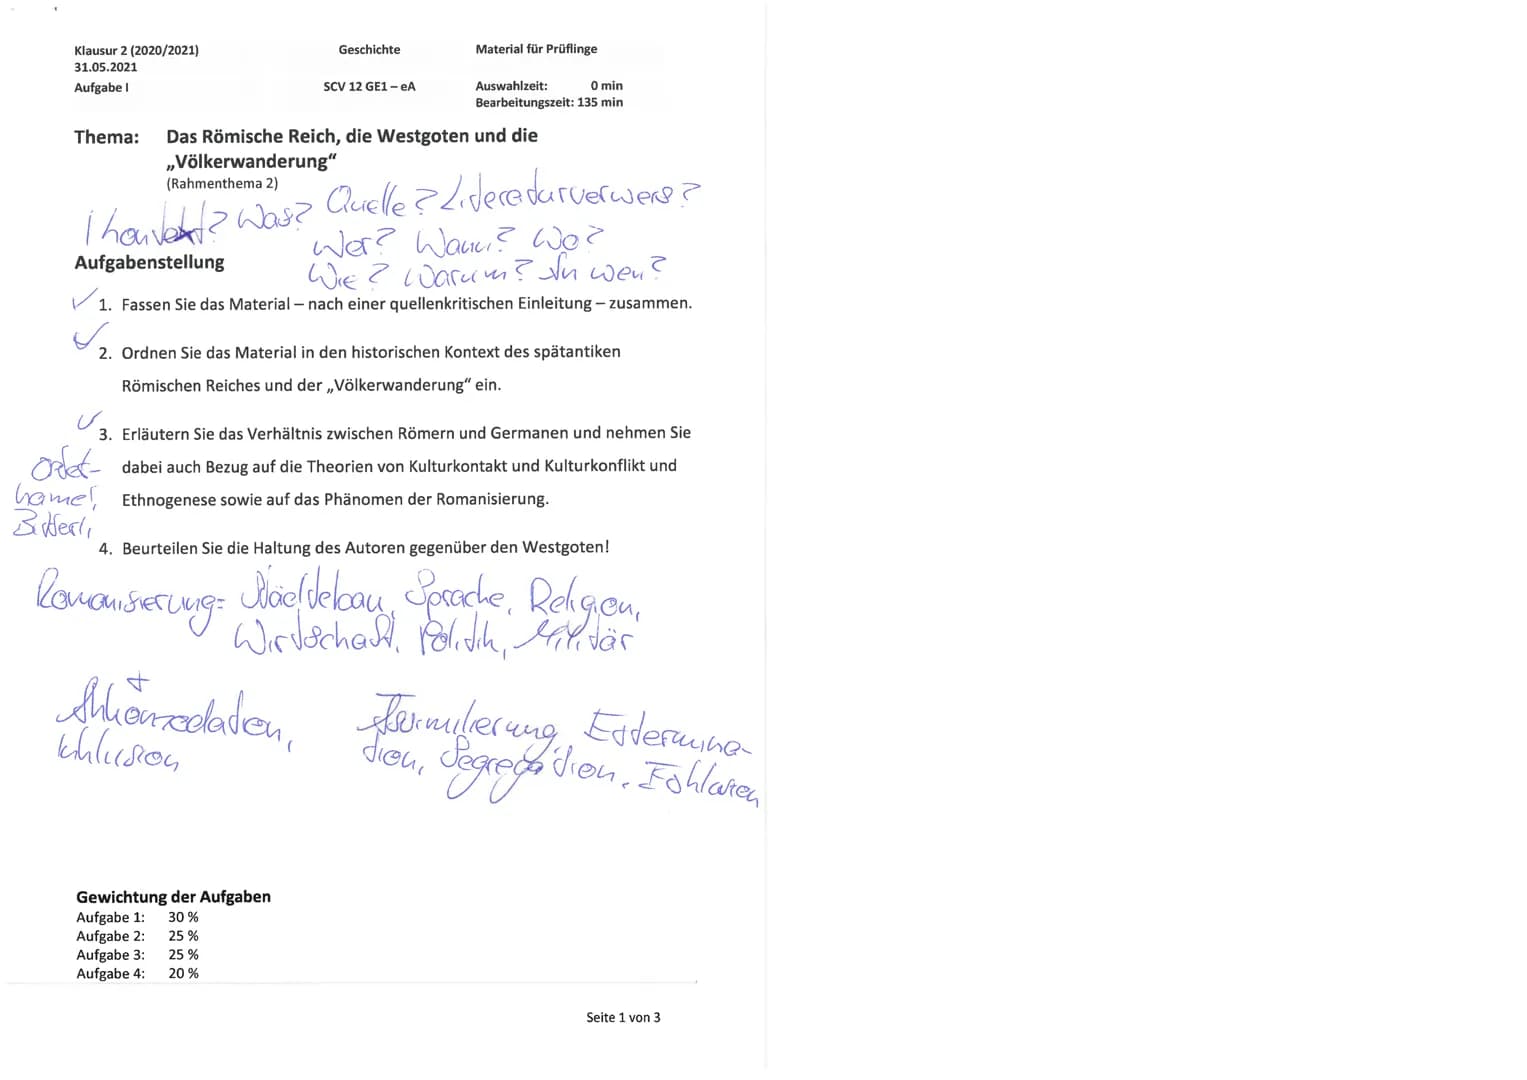 Klausur 2 (2020/2021) Geschichte Material für Prüflinge
31.05.2021
Aufgabe I SCV 12 GE1 – eA Auswahlzeit: 0 min
Bearbeitungszeit: 135 min
Thema: Das Römische Reich, die Westgoten und die
„Völkerwanderung“
(Rahmenthema 2)
Quelle? Literaturverweis?
Was?
Wer? Wann? Wo?
Wie? Warum? An wen?
Aufgabenstellung
1. Fassen Sie das Material – nach einer quellenkritischen Einleitung – zusammen.
2. Ordnen Sie das Material in den historischen Kontext des spätantiken
Römischen Reiches und der „Völkerwanderung“ ein.
3. Erläutern Sie das Verhältnis zwischen Römern und Germanen und nehmen Sie
dabei auch Bezug auf die Theorien von Kulturkontakt und Kulturkonflikt und
Ethnogenese sowie auf das Phänomen der Romanisierung.
Bitterli,
4. Beurteilen Sie die Haltung des Autoren gegenüber den Westgoten!
Romanisierung= Städtebau, Sprache, Religion,
Wirtschaft, Politik, Militär
+
Akkomodation,
Inklusion
Assimilierung, Extermina-
tion, Segregation, Exklusion
Gewichtung der Aufgaben
Aufgabe 1: 30 %
Aufgabe 2: 25 %
Aufgabe 3: 25 %
Aufgabe 4: 20 %
Seite 1 von 3